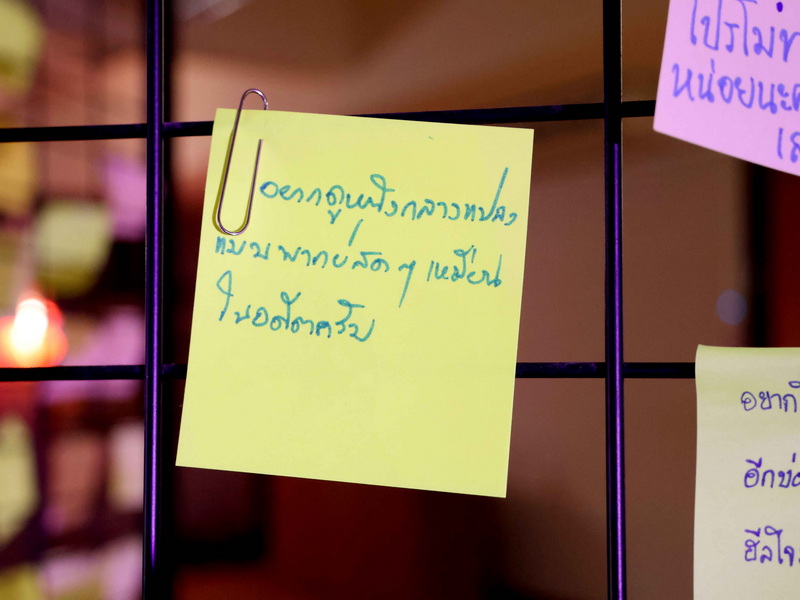 อยากดูหนังกลางแปลง
แบบพากย์สด ๆ เหมือน
ในอดีตครับ
โปรโม
หน่อยนะค
เส
อยากใ
อีกบ่อ
ฮีลใจ